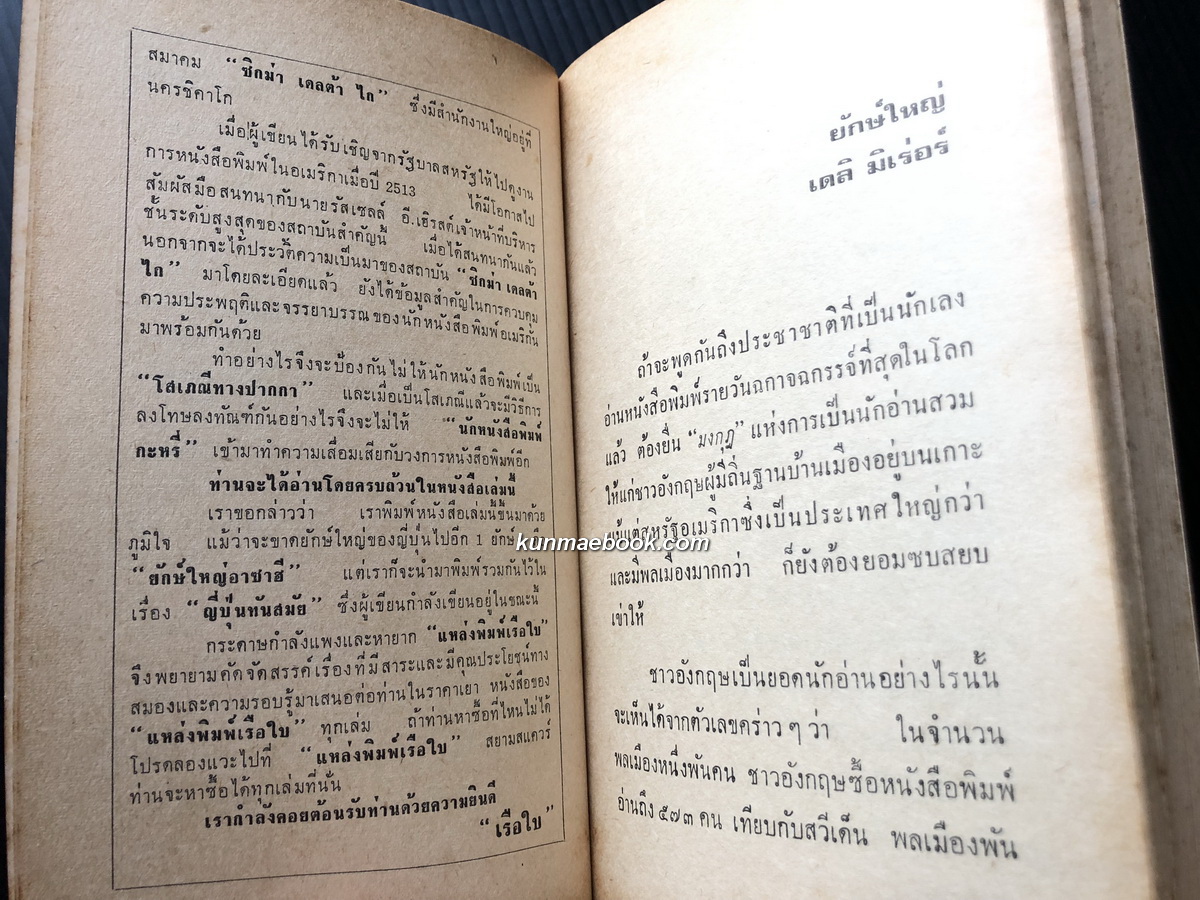 สมาคม “ซิกม่า เดลต้า ไก” ซึ่งมีสำนักงานใหญ่อยู่ที่
นครชิคาโก
เมื่อผู้เขียนได้รับเชิญจากรัฐบาลสหรัฐให้ไปดูงาน
การหนังสือพิมพ์ในอเมริกาเมื่อปี 2513 ได้มีโอกาสไป
สัมผัสมือสนทนากับนายรัสเซลล์ อี.เฮิรสต์เจ้าหน้าที่บริหาร
ชั้นระดับสูงสุดของสถาบันสำคัญนี้ เมื่อได้สนทนากันแล้ว
นอกจากจะได้ประวัติความเป็นมาของสถาบัน “ซิกม่า เดลต้า
ไก” มาโดยละเอียดแล้ว ยังได้ข้อมูลสำคัญในการควบคุม
ความประพฤติและจรรยาบรรณของนักหนังสือพิมพ์อเมริกัน
มาพร้อมกันด้วย
ทำอย่างไรจึงจะป้องกันไม่ให้นักหนังสือพิมพ์เป็น
“โสเภณีทางปากกา” และเมื่อเป็นโสเภณีแล้วจะมีวิธีการ
ลงโทษลงทัณฑ์กันอย่างไรจึงจะไม่ให้ “นักหนังสือพิมพ์
กะหรี่” เข้ามาทำความเสื่อมเสียกับวงการหนังสือพิมพ์อีก
ท่านจะได้อ่านโดยครบถ้วนในหนังสือเล่มนี้
เราขอกล่าวว่า เราพิมพ์หนังสือเล่มนี้ขึ้นมาด้วย
ภูมิใจ แม้ว่าจะขาดยักษ์ใหญ่ของญี่ปุ่นไปอีก 1 ยักษ์
“ยักษ์ใหญ่อาซาฮี” แต่เราก็จะนำมาพิมพ์รวมกันไว้ใน
เรื่อง “ญี่ปุ่นทันสมัย” ซึ่งผู้เขียนกำลังเขียนอยู่ในขณะนี้
กระดาษกำลังแพงและหายาก “แหล่งพิมพ์เรือใบ”
จึงพยายามคัดจัดสรรค์เรื่องที่มีสาระและมีคุณประโยชน์ทาง
สมองและความรอบรู้มาเสนอต่อท่านในราคาเยา หนังสือของ
“แหล่งพิมพ์เรือใบ” ทุกเล่ม ถ้าท่านหาซื้อที่ไหนไม่ได้
โปรดลองแวะไปที่ “แหล่งพิมพ์เรือใบ” สยามสแควร์
ท่านจะหาซื้อได้ทุกเล่มที่นั่น
เรากำลังคอยต้อนรับท่านด้วยความยินดี
“เรือใบ”
ยักษ์ใหญ่
เดลิ มิเร่อร์
ถ้าจะพูดกันถึงประชาชาติที่เป็นนักเลง
อ่านหนังสือพิมพ์รายวันฉกาจฉกรรจ์ที่สุดในโลก
แล้ว ต้องยื่น “มงกุฎ” แห่งการเป็นนักอ่านสวม
ให้แก่ชาวอังกฤษผู้มีถิ่นฐานบ้านเมืองอยู่บนเกาะ
แม้แต่สหรัฐอเมริกาซึ่งเป็นประเทศใหญ่กว่า
และมีพลเมืองมากกว่า ก็ยังต้องยอมซบสยบ
เข่าให้
ชาวอังกฤษเป็นยอดนักอ่านอย่างไรนั้น
จะเห็นได้จากตัวเลขคร่าว ๆ ว่า ในจำนวน
พลเมืองหนึ่งพันคน ชาวอังกฤษซื้อหนังสือพิมพ์
อ่านถึง ๕๗๓ คน เทียบกับสวีเด็น พลเมืองพัน
kunmaebook.com